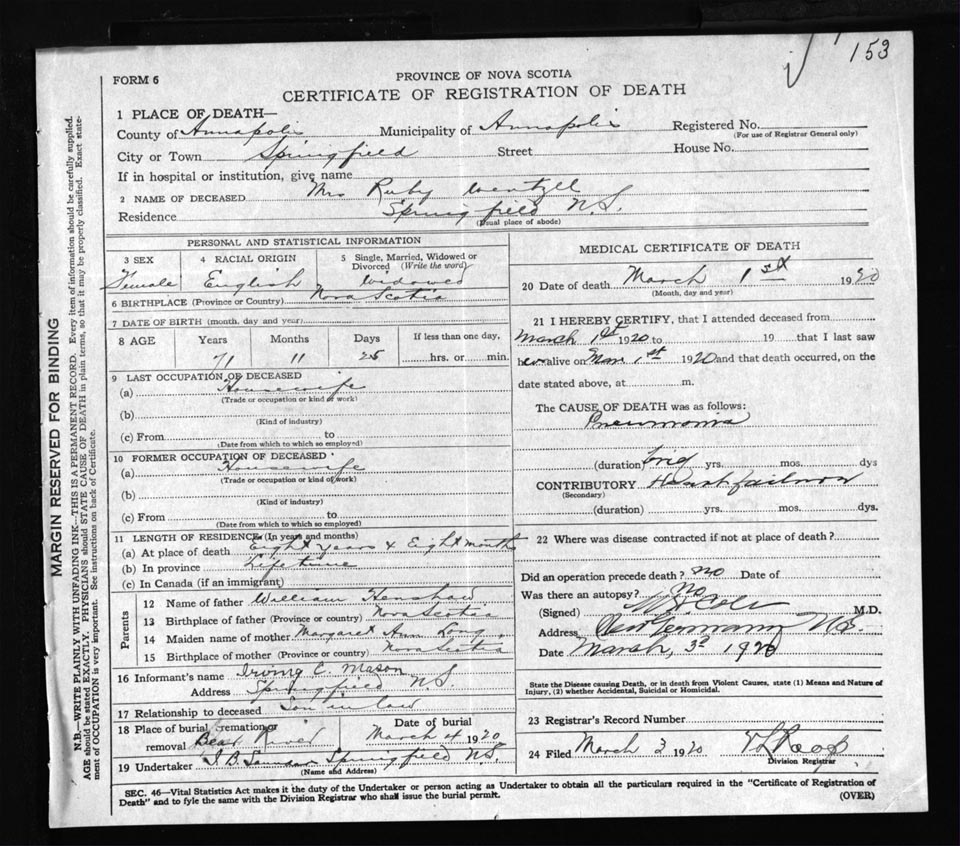 153
FORM 6
PROVINCE OF NOVA SCOTIA
CERTIFICATE OF REGISTRATION OF DEATH
1 PLACE OF DEATH—
County of Annapolis Municipality of Annapolis Registered No.
(For use of Registrar General only)
City or Town Springfield Street House No.
If in hospital or institution, give name
2 NAME OF DECEASED Mrs Ruby Wentzell
Residence Springfield N.S.
(Usual place of abode)
PERSONAL AND STATISTICAL INFORMATION
3 SEX Female
4 RACIAL ORIGIN English
5 Single, Married, Widowed or Divorced (Write the word) Widowed
6 BIRTHPLACE (Province or Country) Nova Scotia
7 DATE OF BIRTH (month, day and year)
8 AGE Years Months Days If less than one day,
71 11 25 hrs. or min.
9 LAST OCCUPATION OF DECEASED
(a) Housewife
(Trade or occupation or kind of work)
(b)
(Kind of industry)
(c) From to
(Date from which to which so employed)
10 FORMER OCCUPATION OF DECEASED
(a) Housewife
(Trade or occupation or kind of work)
(b)
(Kind of industry)
(c) From to
(Date from which to which so employed)
11 LENGTH OF RESIDENCE (In years and months)
(a) At place of death Eight years & Eight months
(b) In province Life time
(c) In Canada (if an immigrant)
Parents
12 Name of father William Henshaw
13 Birthplace of father (Province or country) Nova Scotia
14 Maiden name of mother Margaret Ann Long
15 Birthplace of mother (Province or country) Nova Scotia
16 Informant's name Irving C. Mason
Address Springfield N.S.
17 Relationship to deceased Son in law
18 Place of burial, cremation or removal Bear River
Date of burial March 4 1920
19 Undertaker Springfield N.S.
(Name and Address)
MEDICAL CERTIFICATE OF DEATH
20 Date of death March 1st 1920
(Month, day and year)
21 I HEREBY CERTIFY, that I attended deceased from
March 1st 1920 to 19 that I last saw
her alive on Mar 1st 1920 and that death occurred, on the
date stated above, at m.
The CAUSE OF DEATH was as follows:
Pneumonia
(duration) yrs. mos. dys
CONTRIBUTORY Heart failure
(Secondary)
(duration) yrs. mos. dys.
22 Where was disease contracted if not at place of death?
Did an operation precede death? no Date of
Was there an autopsy? no
(Signed) M.D.
Address New Germany N.S.
Date March, 3d 1920
State the Disease causing Death, or in death from Violent Causes, state (1) Means and Nature of
Injury, (2) whether Accidental, Suicidal or Homicidal.
23 Registrar's Record Number
24 Filed March 3 1920
Division Registrar
SEC. 46—Vital Statistics Act makes it the duty of the Undertaker or person acting as Undertaker to obtain all the particulars required in the "Certificate of Registration of
Death" and to fyle the same with the Division Registrar who shall issue the burial permit.
(OVER)
MARGIN RESERVED FOR BINDING
N.B.—WRITE PLAINLY WITH UNFADING INK—THIS IS A PERMANENT RECORD. Every item of information should be carefully supplied.
AGE should be stated EXACTLY. PHYSICIANS should STATE CAUSE OF DEATH in plain terms, so that it may be properly classified. Exact state-
ment of OCCUPATION is very important. See instructions on back of Certificate.